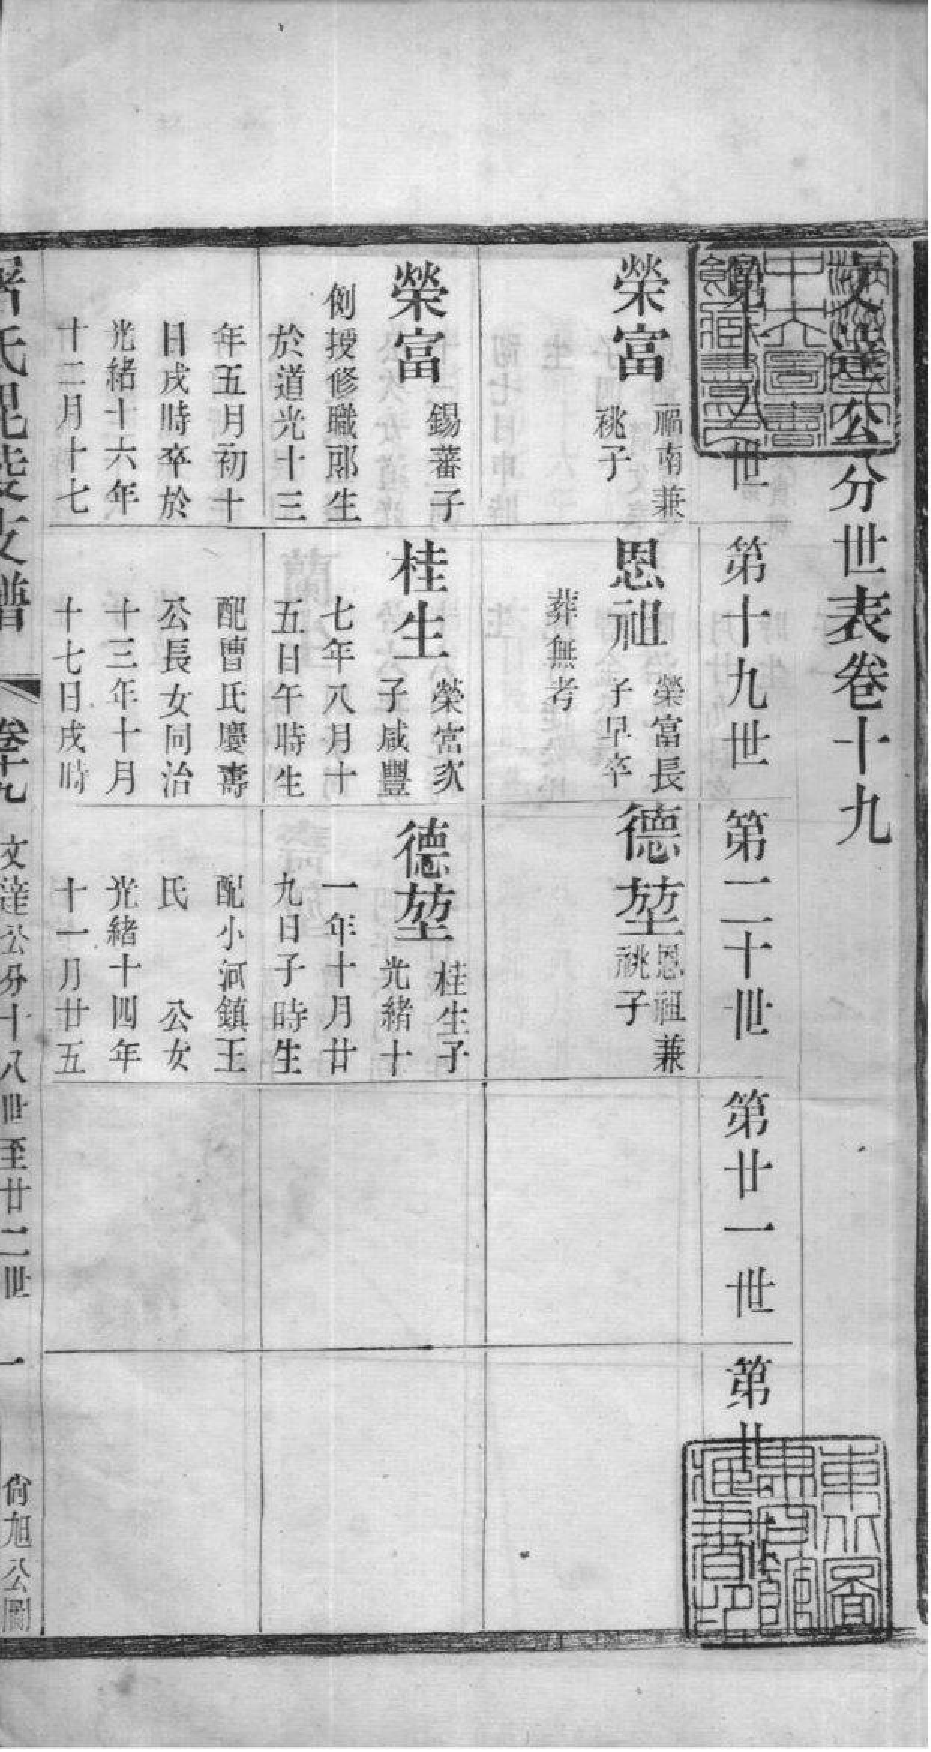 文達公分世表卷十九
第十八世
第十九世
第二十世
第廿一世
第廿二世
榮富
福南兼
祧子
恩祖
榮富長
子早卒
葬無考
德堃
恩祖兼
祧子
榮富
錫蕃子
例授修職郎生
於道光十三
年五月初十
日戌時卒於
光緒十六年
十二月十七
桂生
榮富次
子咸豐
七年八月十
五日午時生
配曹氏慶壽
公長女同治
十三年十月
十七日戌時
德堃
桂生子
光緒十
一年十月廿
九日子時生
配小河鎮王
氏 公女
光緒十四年
十一月廿五
氏毘陵支譜
卷十九
文達公分十八世至廿二世
一
尙旭公